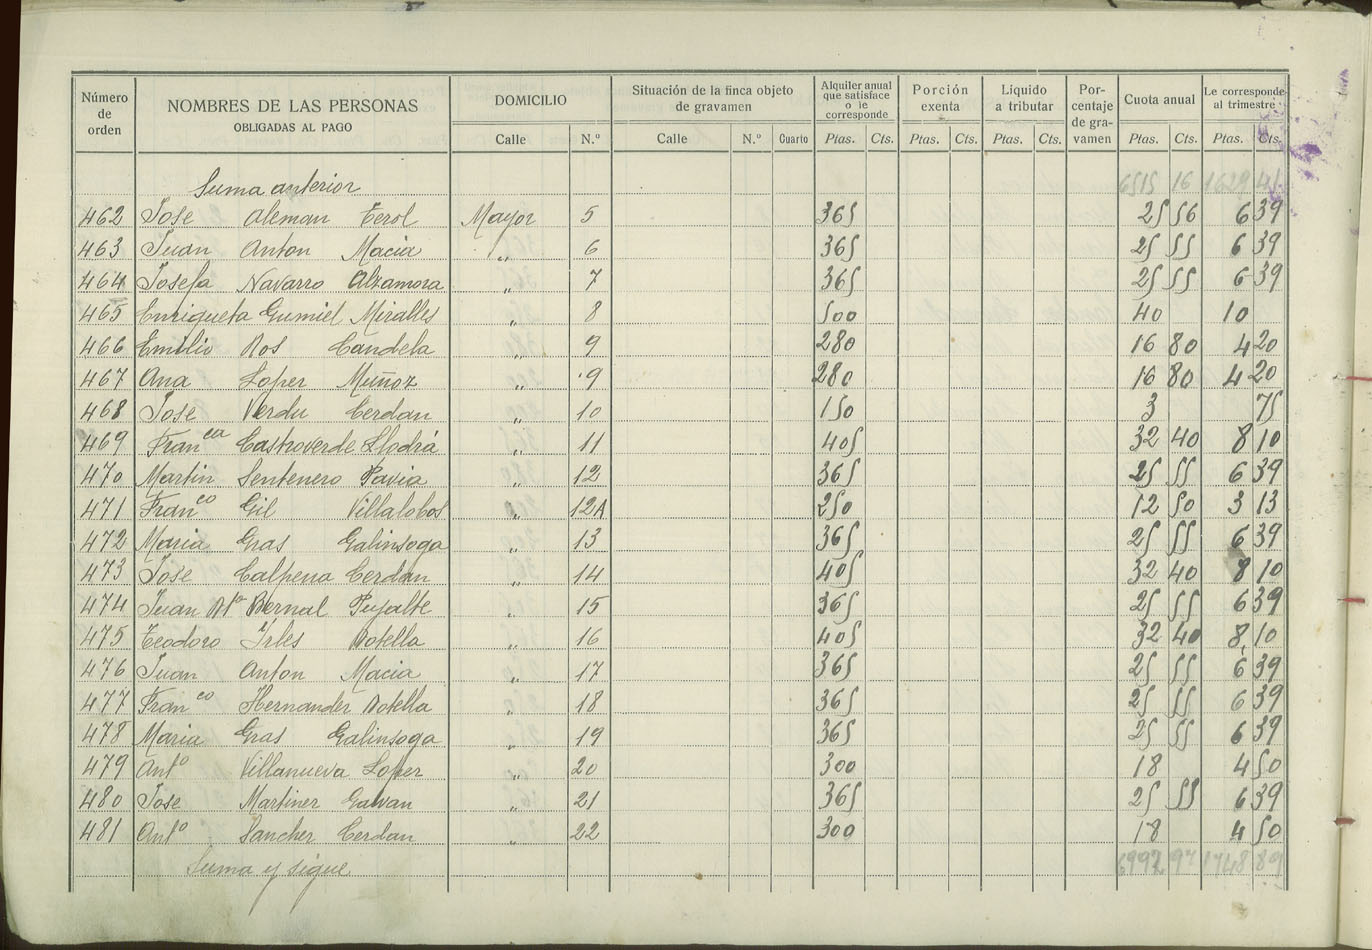 Número de orden | NOMBRES DE LAS PERSONAS OBLIGADAS AL PAGO | DOMICILIO | Situación de la finca objeto de gravamen | Alquiler anual que satisface o le corresponde | Porción exenta | Líquido a tributar | Porcentaje de gravamen | Cuota anual | Le corresponde al trimestre
Calle | N.º | Calle | N.º | Cuarto | Ptas. | Cts. | Ptas. | Cts. | Ptas. | Cts. | Ptas. | Cts. | Ptas. | Cts.
Suma anterior 6515 16 1629 41
462 Jose Aleman Terol Mayor 5 365 25 56 6 39
463 Juan Anton Macia " 6 365 25 55 6 39
464 Josefa Navarro Alzamora " 7 365 25 55 6 39
465 Enriqueta Gumiel Miralles " 8 500 40 10
466 Emilio Ros Candela " 9 280 16 80 4 20
467 Ana Loper Muñoz " 9 280 16 80 4 20
468 Jose Verdu Cerdan " 10 150 3 75
469 Fran ca Castroverde Llodrá " 11 405 32 40 8 10
470 Martin Sentenero Pavia " 12 365 25 55 6 39
471 Fran co Gil Villalobos " 12A 250 12 50 3 13
472 Maria Gras Galinsoga " 13 365 25 55 6 39
473 Jose Calpena Cerdan " 14 405 32 40 8 10
474 Juan Bernal Pujalte " 15 365 25 55 6 39
475 Teodoro Irles Botella " 16 405 32 40 8,10
476 Juan Anton Macia " 17 365 25 55 6 39
477 Fran co Hernander Botella " 18 365 25 55 6 39
478 Maria Gras Galinsoga " 19 365 25 55 6 39
479 Antº Villanueva Loper " 20 300 18 4 50
480 Jose Martiner Galvan " 21 365 25 55 6 39
481 Antº Sancher Cerdan " 22 300 18 4 50
Suma y sigue 6992 97 1748 89